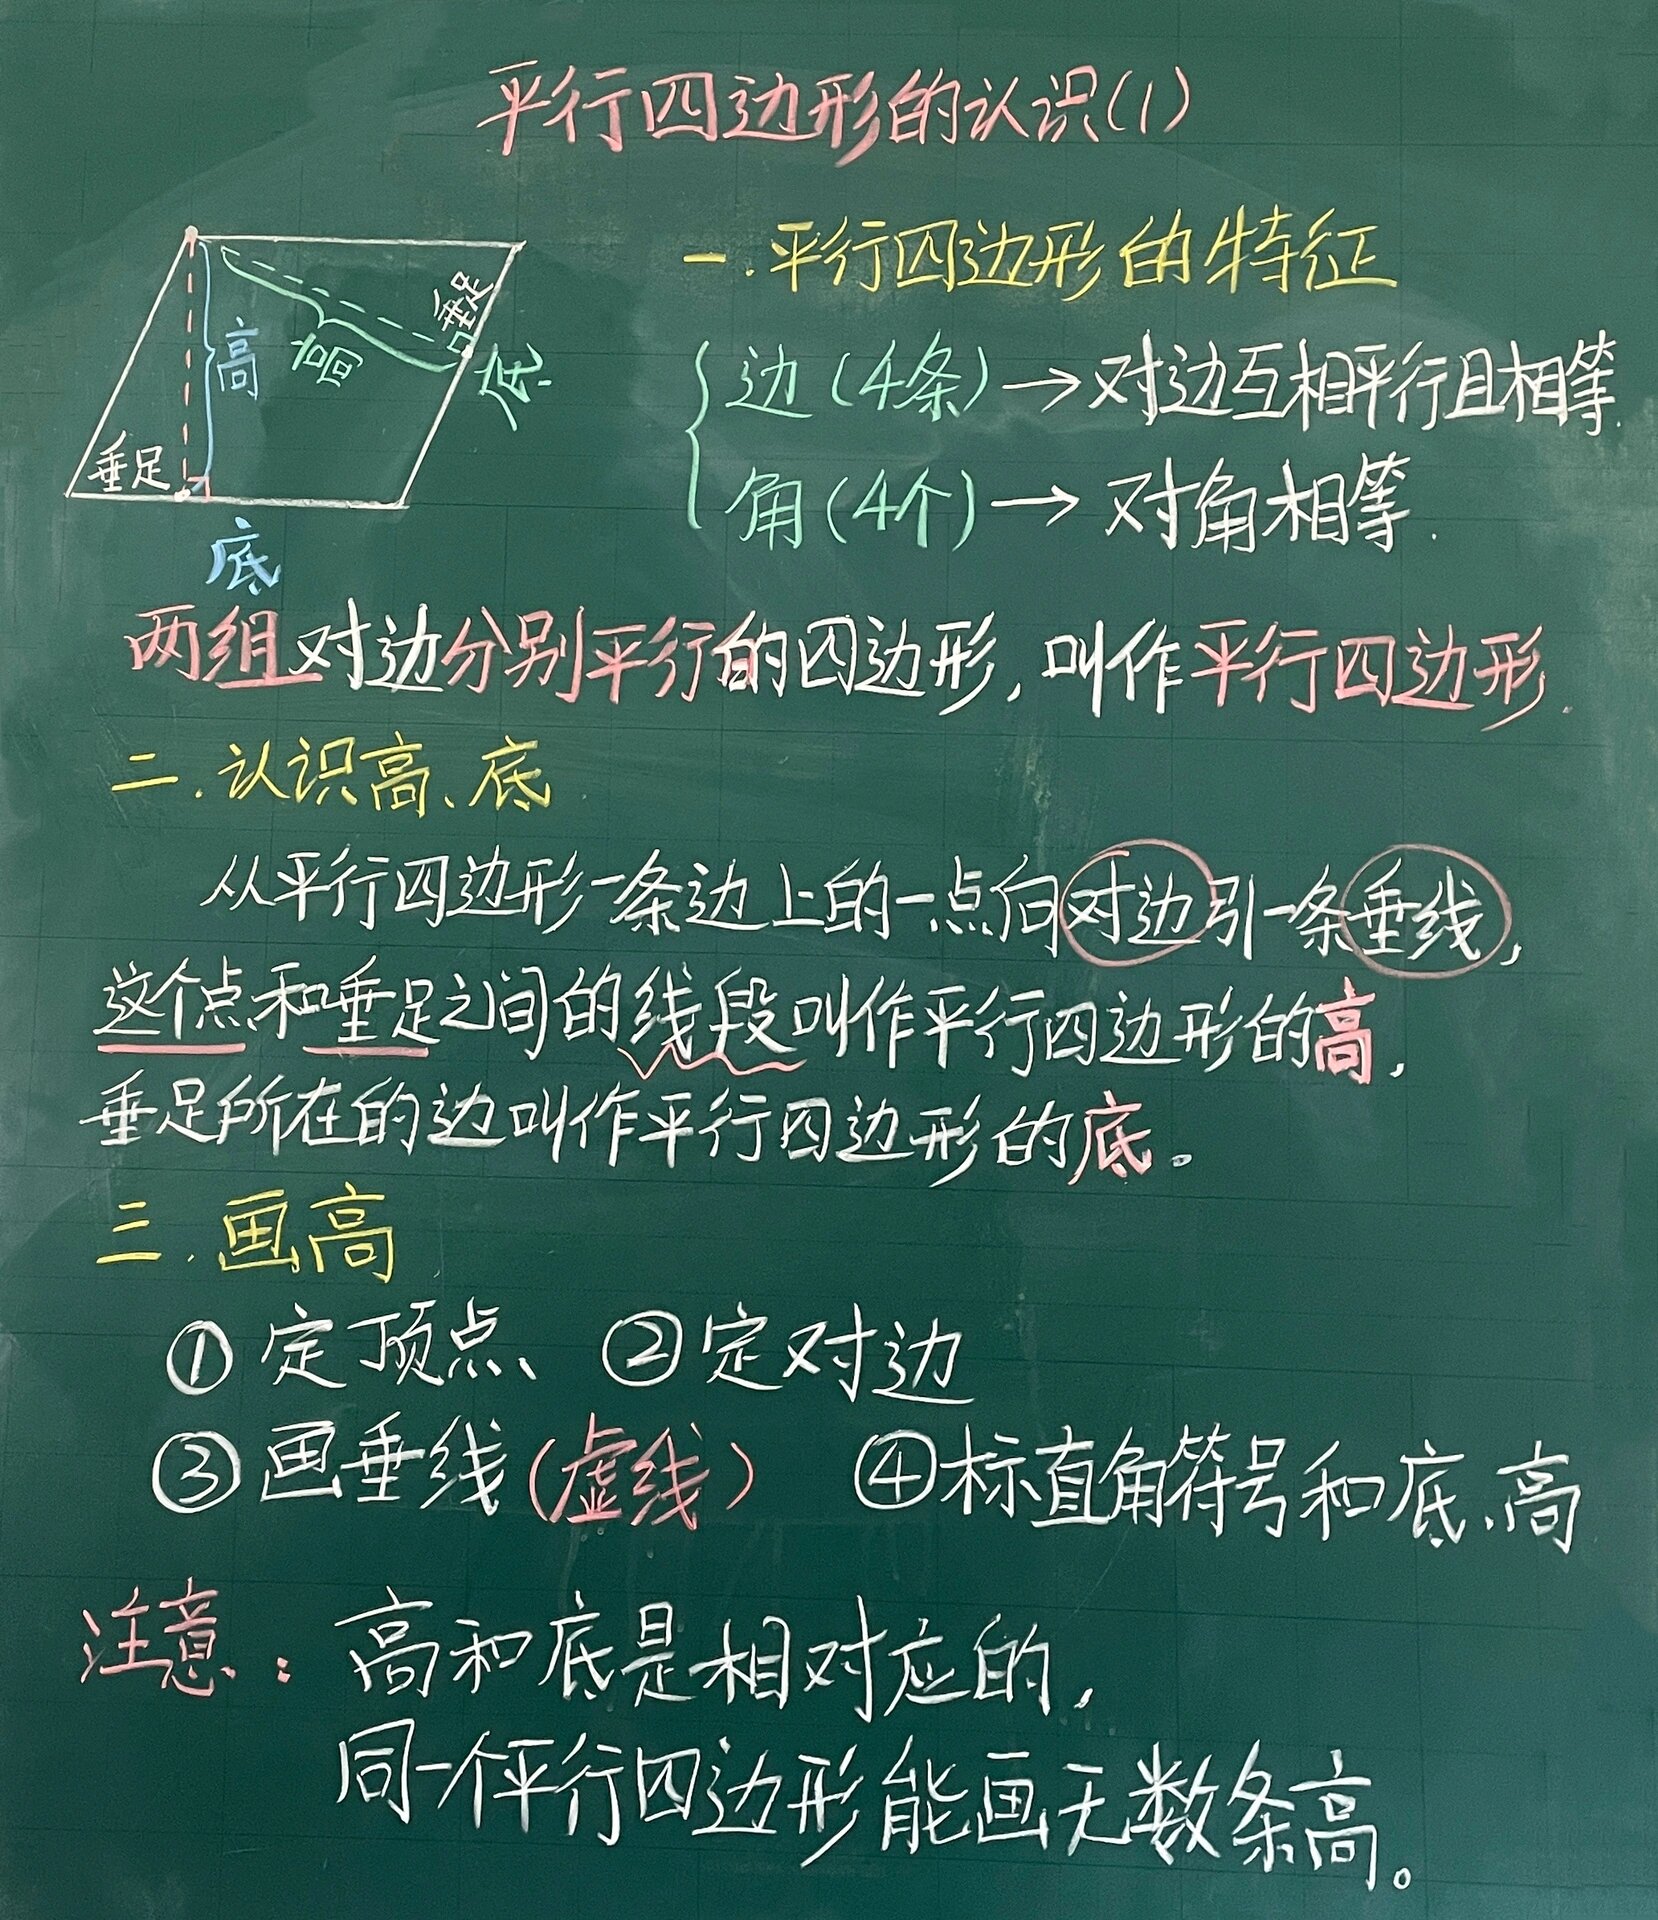 平行四边形的认识(1)
一.平行四边形的特征
高
高
垂足
底
垂足
底
边(4条)→对边互相平行且相等.
角(4个)→对角相等.
两组对边分别平行的四边形,叫作平行四边形.
二.认识高、底
从平行四边形一条边上的一点向对边引一条垂线,
这个点和垂足之间的线段叫作平行四边形的高,
垂足所在的边叫作平行四边形的底。
三.画高
①定顶点、 ②定对边
③画垂线(虚线) ④标直角符号和底、高
注意:高和底是相对应的,
同一个平行四边形能画无数条高。